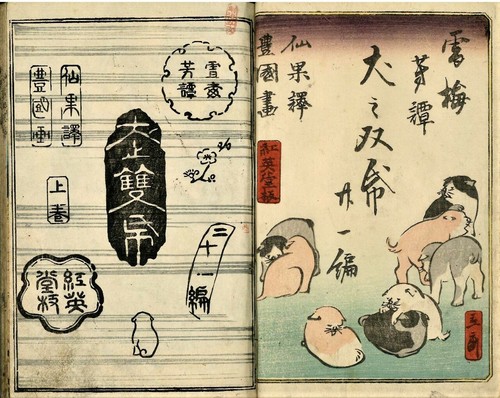 雪梅
芳譚
犬之双帋
廿一編
仙果譯
豊國畫
紅英�板
雪梅
芳譚
犬之雙帋
二十一編
仙果譯
豊國画
上巻
紅英
堂梓